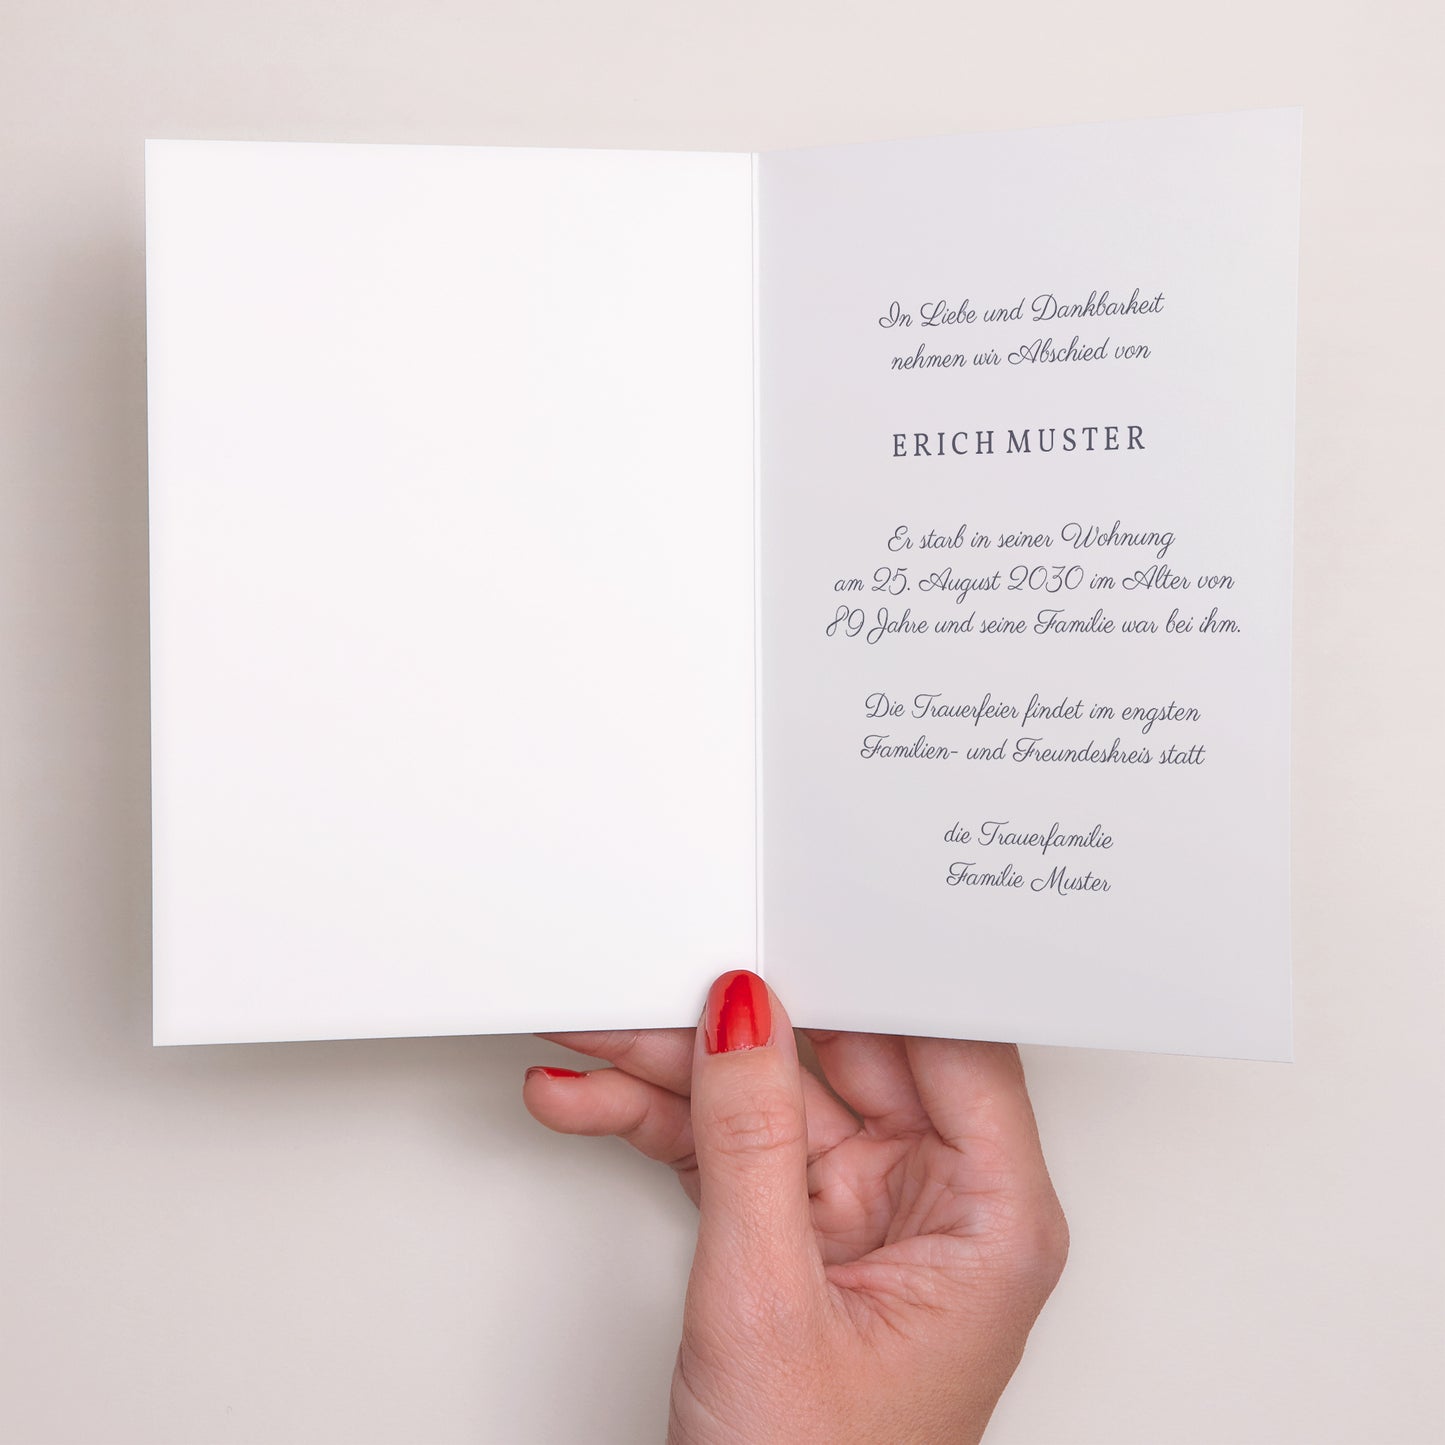 In Liebe und Dankbarkeit
nehmen wir Abschied von
ERICH MUSTER
Er starb in seiner Wohnung
am 25. August 2030 im Alter von
89 Jahre und seine Familie war bei ihm.
Die Trauerfeier findet im engsten
Familien- und Freundeskreis statt
die Trauerfamilie
Familie Muster